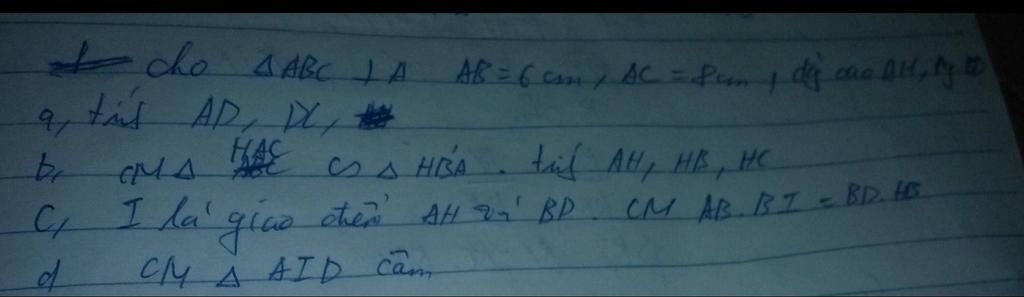 cho △ABC ⊥ A AB = 6 cm, AC = 8 cm, đg cao AH,
a, tính AD, DC,
b, CM △ HAC ∽ △ HBA. tính AH, HB, HC
c, I là giao điểm AH và BD. CM AB.BI = BD.HB
d CM △ AID cân